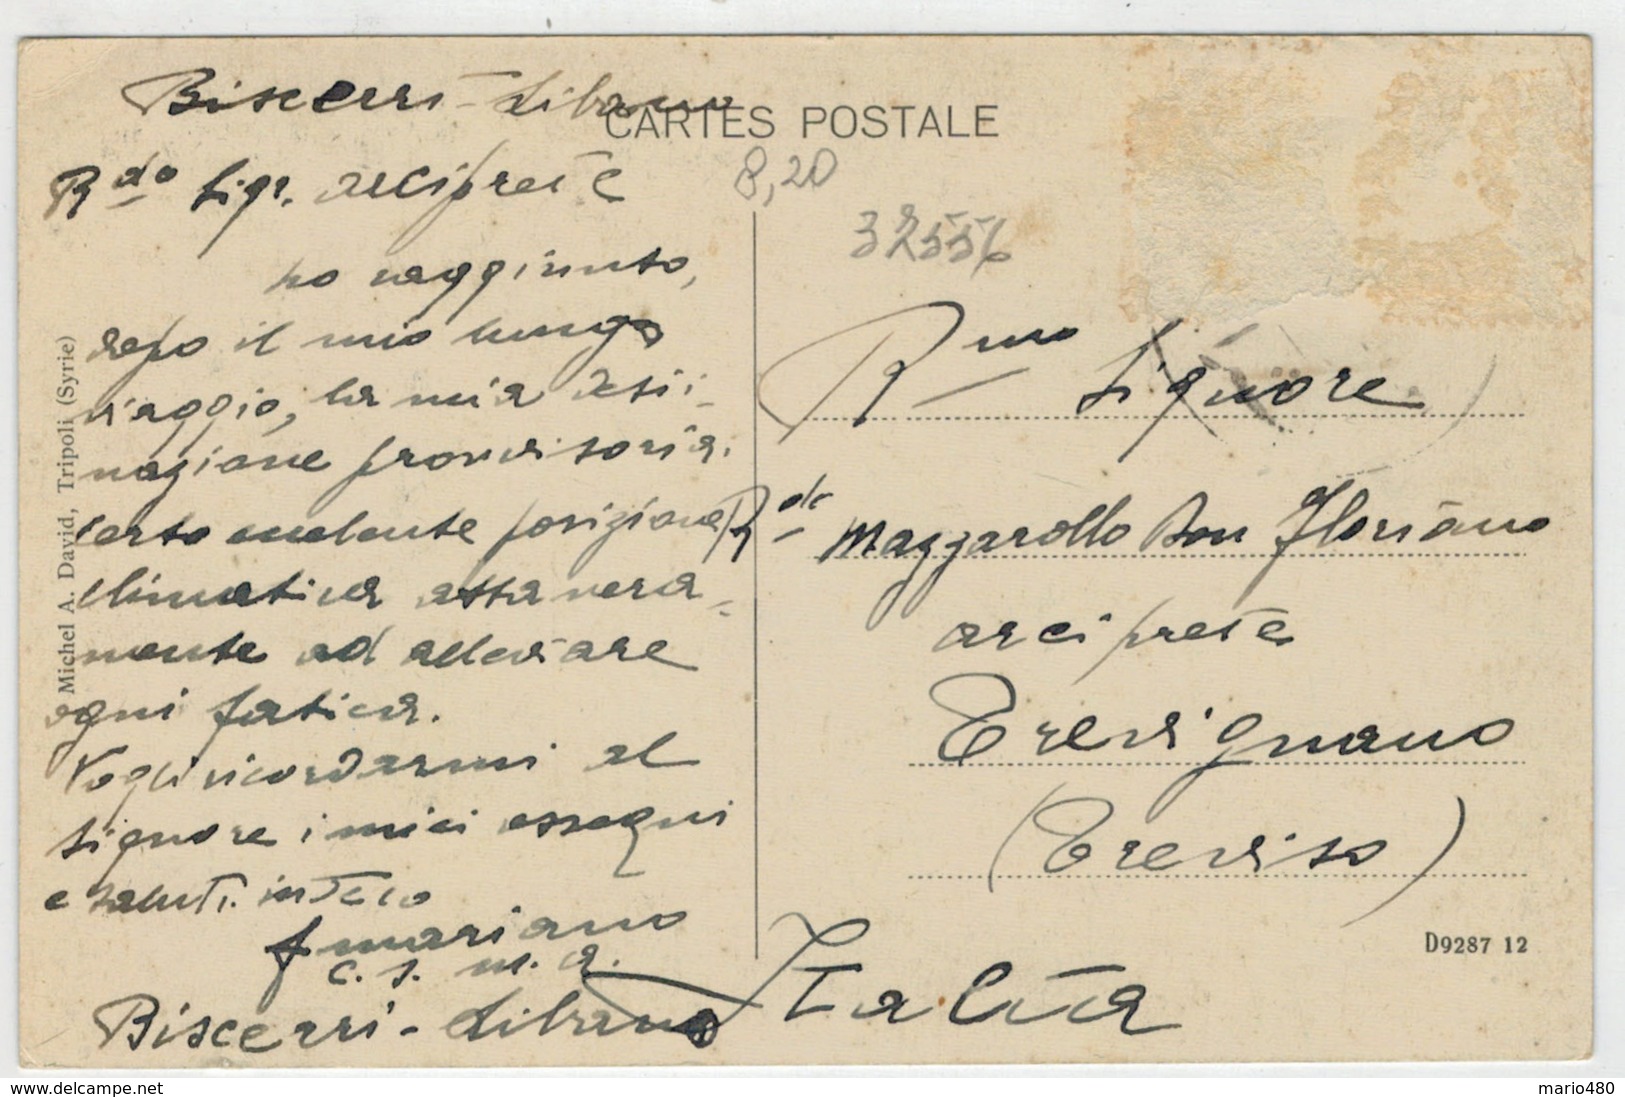 Biscerri - Libano
CARTES POSTALE
Rdo Sigr. arciprete
8,20
32556
ho raggiunto,
dopo il mio lungo
viaggio, la mia desti-
nazione provvisoria.
Certo eccelente posizione
climatica atta vera-
mente ad alleviare
ogni fatica.
Vogli ricordarmi al
Signore i miei ossequi
e saluti. in Teco
f mariano
c. s. m. a.
Biscerri - Libano
Michel A. David, Tripoli (Syrie)
Rmo Signore
Rdo Mazzarollo Don Floriano
arciprete
Trevignano
(Treviso)
Italia
D9287 12
delcampe.net
mario480